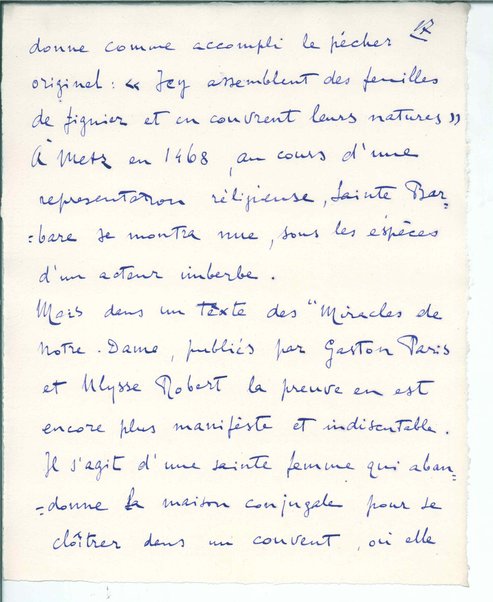 17
donne comme accompli le pécher
originel : « Icy assemblent des feuilles
de figuier et en couvrent leurs natures »
À Metz en 1468, au cours d'une
representation réligieuse, Sainte Bar=
=bare se montra nue, sous les éspèces
d'un acteur imberbe.
Mais dans un texte des "Miracles de
Notre-Dame, publiés par Gaston Paris
et Ulysse Robert la preuve en est
encore plus manifèste et indiscutable.
Il s'agit d'une sainte femme qui aban=
=donne la maison conjugale pour se
cloîtrer dans un couvent, où elle